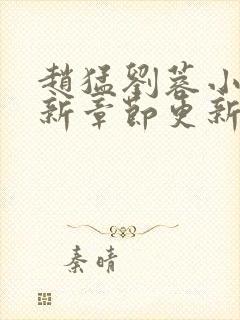 趙猛劉蓉小
新章節更新
秦晴